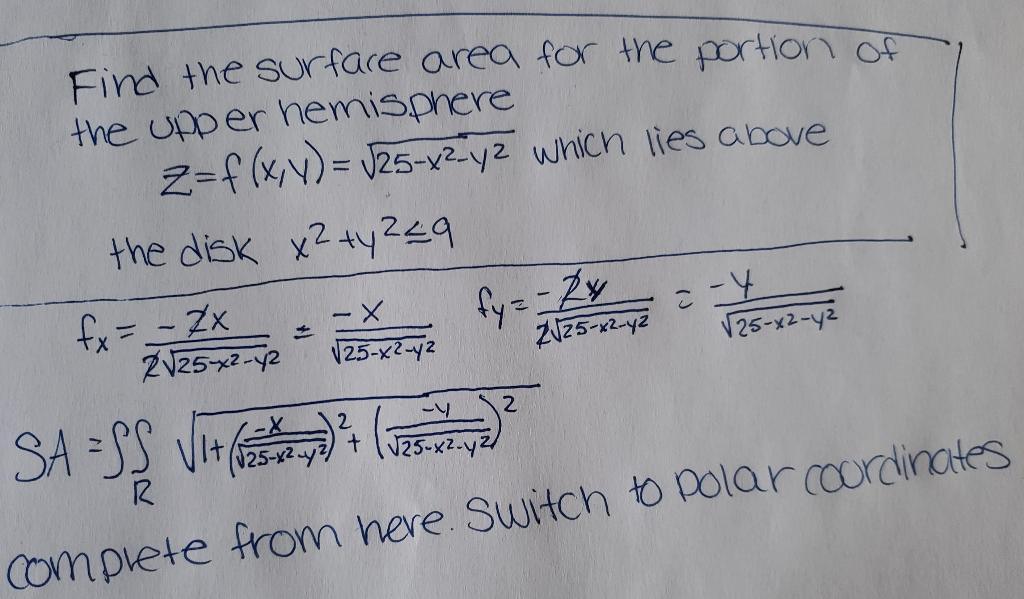 Find the surface area for the portion of
the upper hemisphere
z=f(x,y)=√25-x²-y² which lies above
the disk x²+y²≤9
fx = -2x/2√25-x²-y² = -x/√25-x²-y² fy = -2y/2√25-x²-y² = -y/√25-x²-y²
SA = ∫∫R √1+(-x/√25-x²-y²)²+(-y/√25-x²-y²)²
complete from here. Switch to polar coordinates